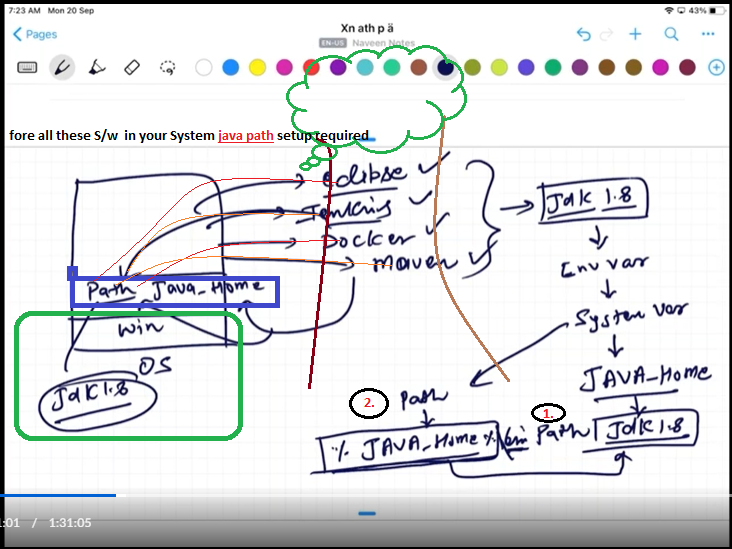 7:23 AM Mon 20 Sep
43%
Pages
Xn ath p ä
EN-US Naveen Notes
fore all these S/w in your System java path setup required
Eclipse
Jenkins
Docker
Maven
Jdk 1.8
Env var
System var
JAVA-Home
Path Java-Home
Win
OS
Jdk 1.8
2.
Path
1.
% JAVA-Home % \bin
Path Jdk 1.8
1:01 / 1:31:05